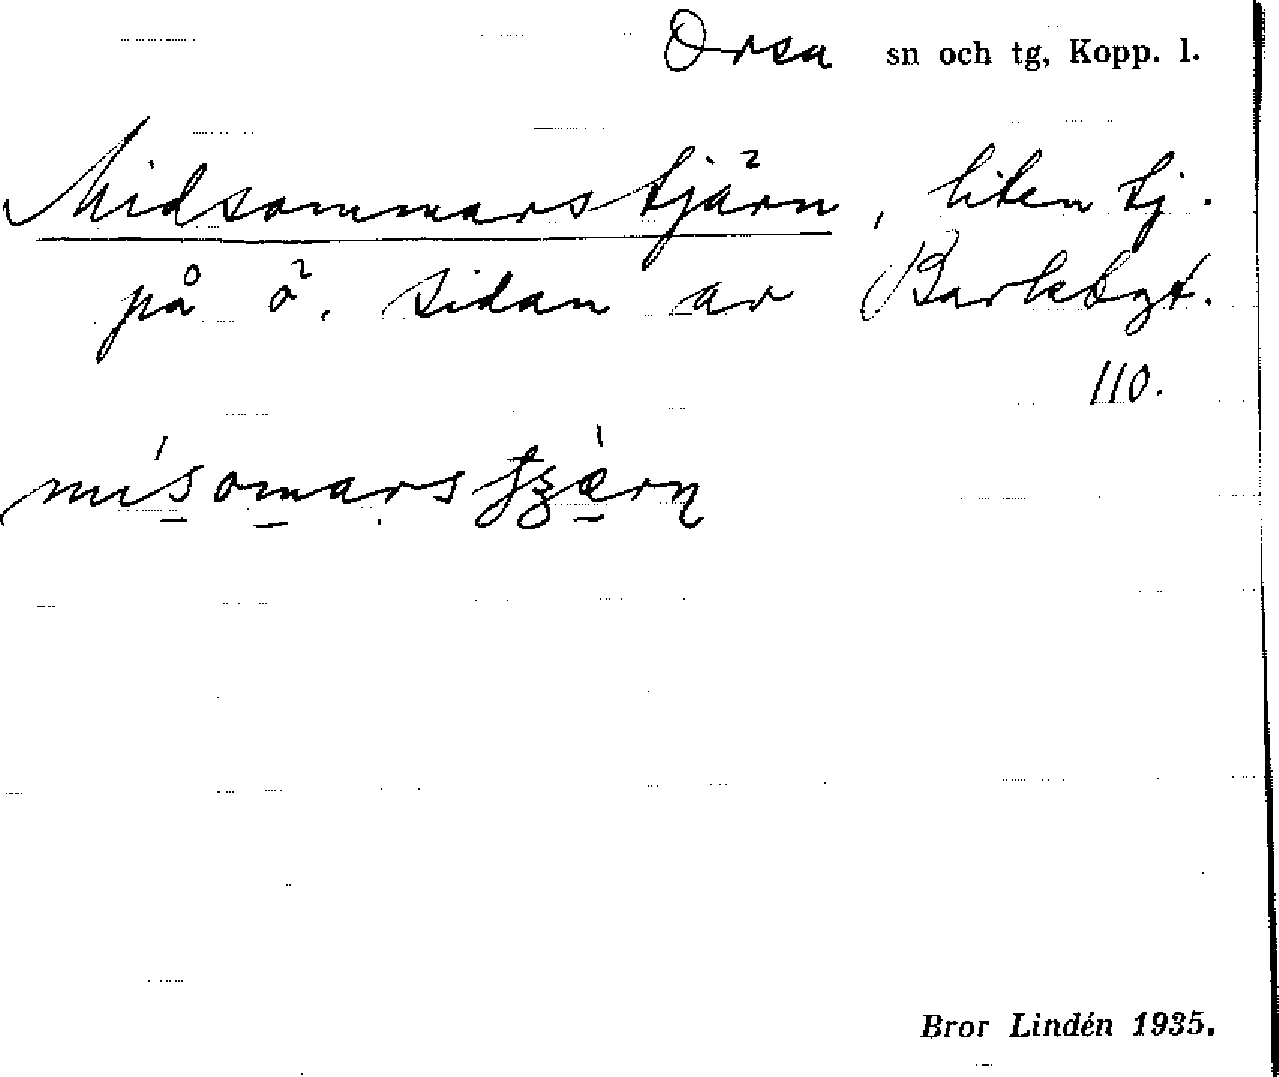 Orsa sn och tg, Kopp. l.
Midsommarstjärn, liten tj.
på ö. sidan av Barkbgt.
110.
Bror Lindén 1935.